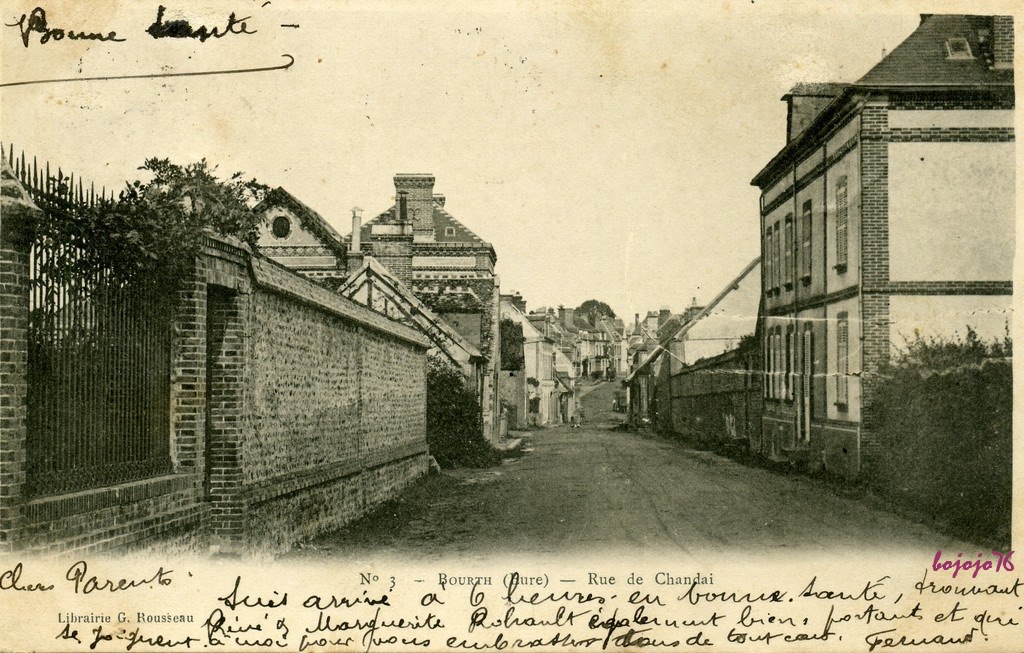 Bonne santé
bojojo76
N° 3 - BOURTH (Eure) — Rue de Chandai
Chers Parents
Suis arrivé à 6 heures en bonne santé, trouvant
Librairie G. Rousseau
René & Marguerite Rohault également bien portant et qui
se joignent à moi pour vous embrasser de tout cœur. Fernand